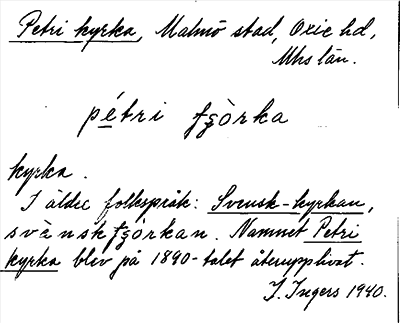 Petri kyrka, Malmö stad, Oxie hd,
Mhs län.
pétri tʃòrka
kyrka.
I äldre folkspråk: Svensk-kyrkan,
svænsktʃòrkan. Namnet Petri
kyrka blev på 1890-talet återupplivat.
I. Ingers 1940.